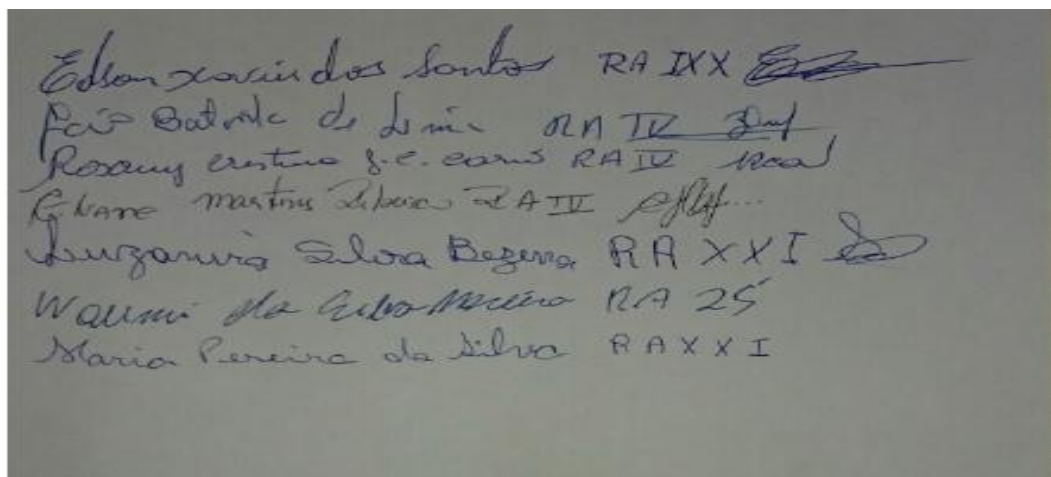 Edson xavier dos Santos RA IXX
Batista de Lima RA IV
Rosany cristina g.e. RA IV
martins Ribeiro RA IV
Luzanira Silva Bezerra RA XXI
da Silva Moreira RA 25
Maria Pereira da Silva RA XXI